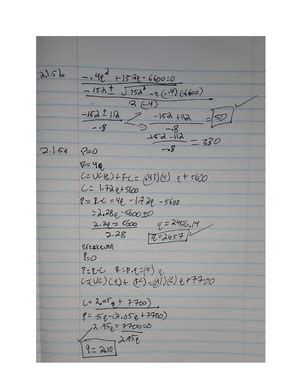 2.1.5b
-.4q² + 152q - 6600 = 0
-152 ± √152² - 4(-.4)(-6600)
2(-.4)
-152 ± 112
-.8
-152 + 112
-.8
= 50
-152 - 112
-.8
= 330
2.1.5a
P=0
R = 4q
C = UC(q) + FC = (.43)(4) q + 5600
C = 1.72q + 5600
P = R - C = 4q - 1.72q - 5600
= 2.28q - 5600 = 0
2.28 = 5600
2.28
q = 2456.14
q = 2457
P=0
P = R - C R = P · q = (5) q
C = (UC)(q) + (FC) = (.41)(5) q + 7700
C = 2.05q + 7700
P = 5q - (2.05q + 7700)
2.95q = 7700 = 0
2.95q
q = 2610